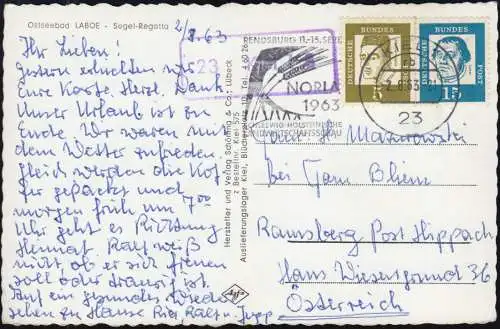 Ostseebad LABOE - Segel-Regatta
2/8.63
Ihr Lieben!
Gestern erhielten wir
Eure Karte. Herzl. Dank
Unser Urlaub ist zu
Ende. Wir waren mit
dem Wetter zufrieden.
Gleich werden die Kof-
fer gepackt und
morgen früh um 7⁰⁰
Uhr geht es Richtung
Heimat. Ralf weiß
nicht ob er sich freuen
soll oder traurig ist.
Auf ein gesundes Wieder-
sehen zu Hause Ralf u. Jupp
Hersteller und Verlag Schöning & Co., Lübeck
Z Bestellnr. Kiel 575
Auslieferungslager Kiel, Blücherplatz Tel. 4 60 26
Agfa
23
RENDSBURG 11.-15. SEPT.
NORLA
1963
SCHLESWIG-HOLSTEINISCHE
LANDWIRTSCHAFTSSCHAU
23
DEUTSCHE
BUNDES
POST
5
DEUTSCHE
BUNDES
POST
15
Fam. H.
bei Fam.
Ramsberg Post Hippach
Hans Wiesengrund 36
Österreich